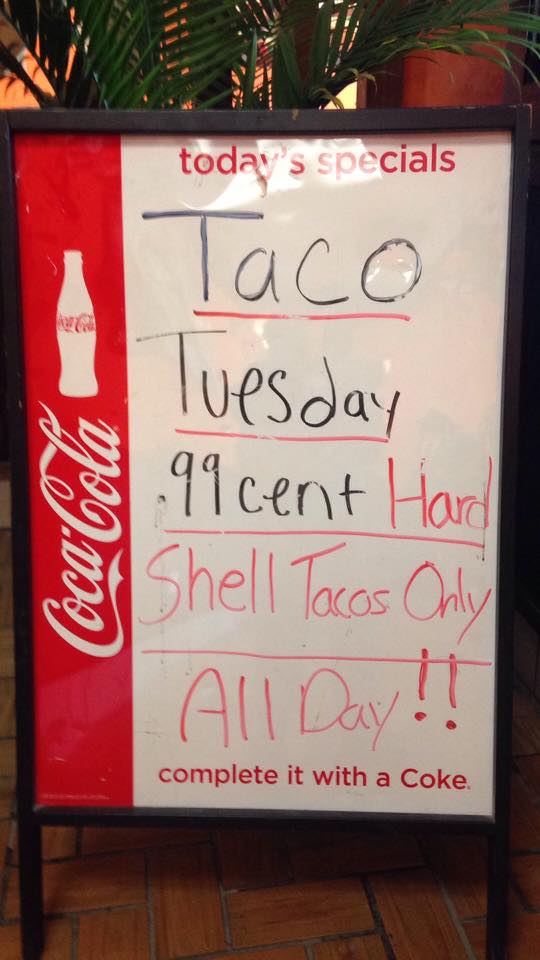 today's specials
Taco
Tuesday
.99 cent Hard
Shell Tacos Only
All Day!!
complete it with a Coke.
Coca-Cola
Coca-Cola